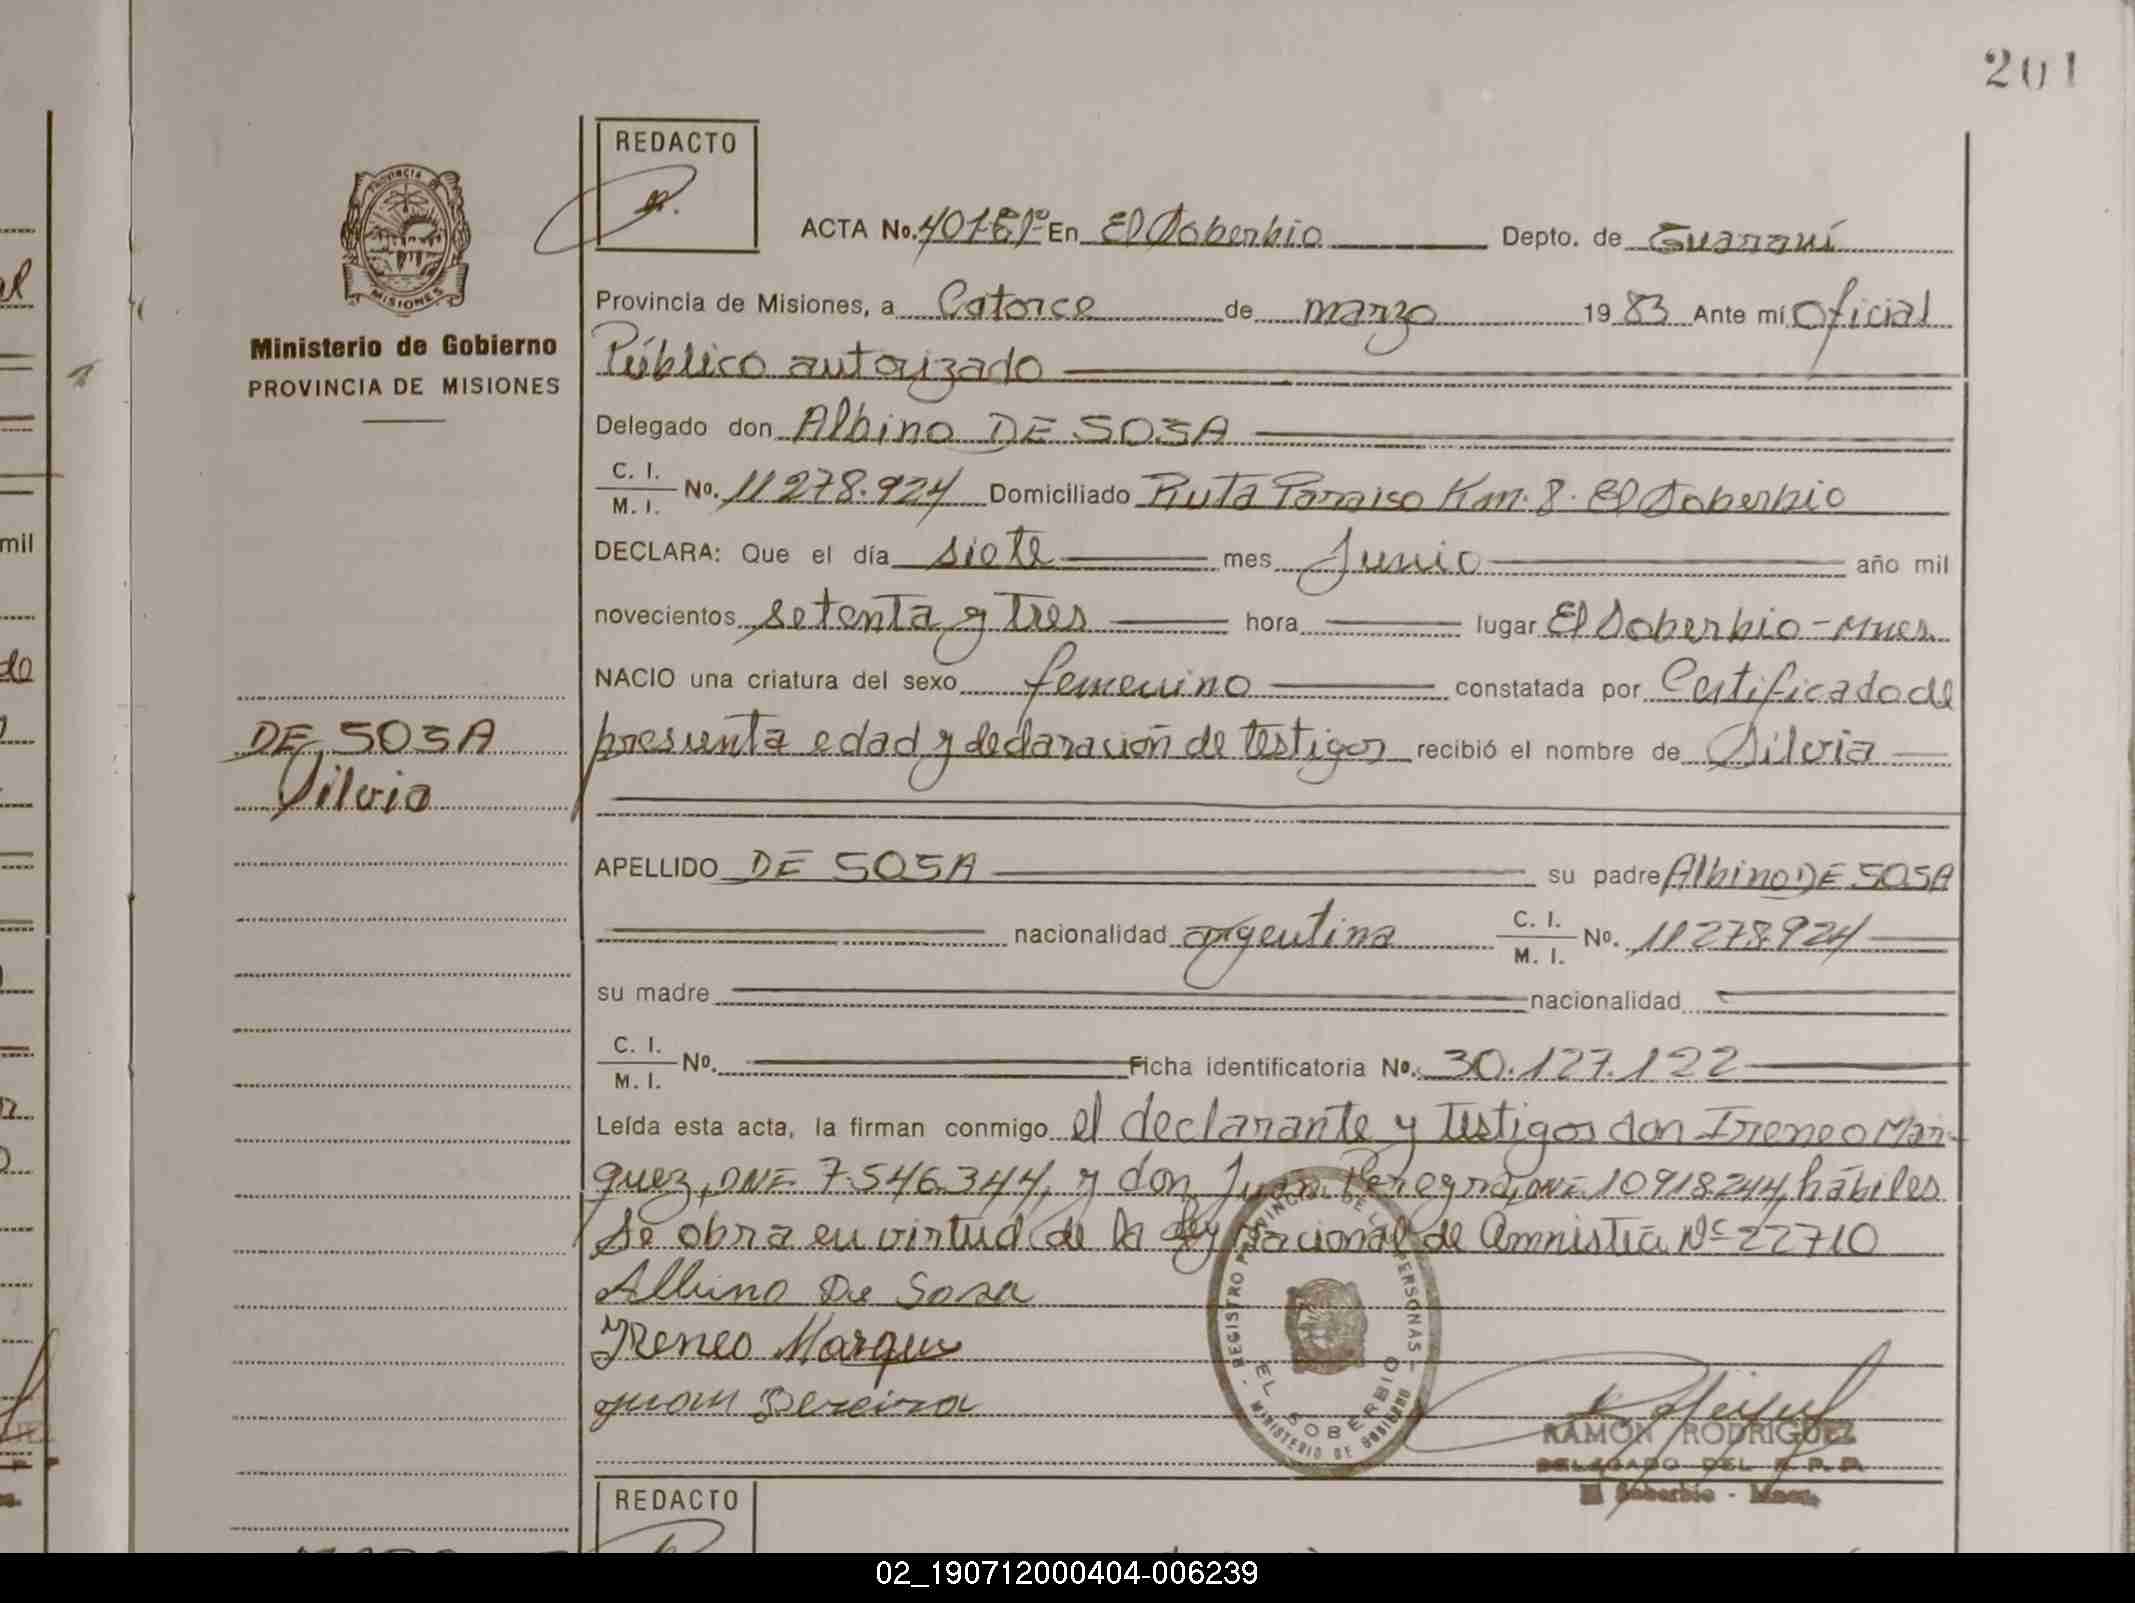 201
REDACTO
ACTA No. En El Soberbio Depto. de Guaraní
Provincia de Misiones, a Catorce de marzo 1983 Ante mí Oficial
Ministerio de Gobierno
PROVINCIA DE MISIONES
Público autorizado
Delegado don Albino DE SOSA
C. I.
M. I. No. 11278.924 Domiciliado Ruta Paraiso Km. 8. El Soberbio
DECLARA: Que el día siete mes Junio año mil
novecientos setenta y Tres hora lugar El Soberbio - Mnes
NACIO una criatura del sexo femenino constatada por Certificado de
DE SOSA
Silvia
presunta edad y declaración de testigos recibió el nombre de Silvia
APELLIDO DE SOSA su padre Albino DE SOSA
nacionalidad argentina C. I.
M. I. No. 11278924
su madre nacionalidad
C. I.
M. I. No. Ficha identificatoria No. 30.127.122
Leída esta acta, la firman conmigo el declarante y Testigos don Ireneo Mar-
quez, 7.546.344, y don Juan 10918244, hábiles
Se obra en virtud de la ley Nacional de Amnistía Nº 22710
Albino De Sosa
Ireneo Marques
Juan Pereira
REGISTRO PROVINCIAL DE LAS PERSONAS
EL SOBERBIO
MINISTERIO DE GOBIERNO
RAMÓN RODRIGUEZ
DELEGADO DEL R. P. P.
El Soberbio - Mnes.
REDACTO
02_190712000404-006239